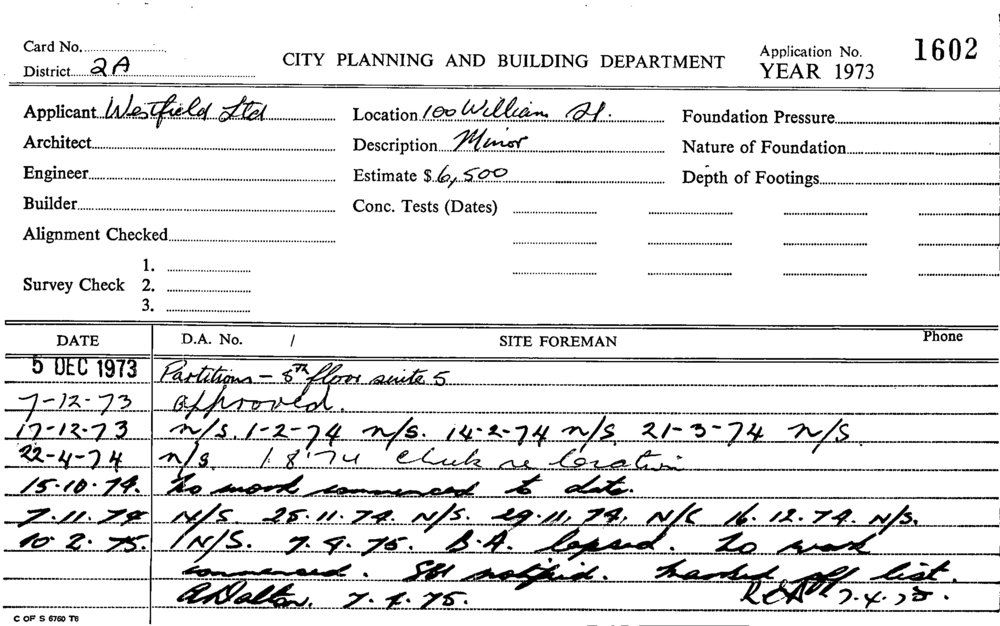 Card No.
District 2A
CITY PLANNING AND BUILDING DEPARTMENT
Application No. 1602
YEAR 1973
Applicant Westfield Ltd
Location 100 William St.
Foundation Pressure
Architect
Description Minor
Nature of Foundation
Engineer
Estimate $ 6,500
Depth of Footings
Builder
Conc. Tests (Dates)
Alignment Checked
1.
Survey Check 2.
3.
DATE D.A. No. / SITE FOREMAN Phone
5 DEC 1973 Partitions - 8th floor suite 5
7-12-73 approved.
17-12-73 n/s. 1-2-74 n/s. 14-2-74 n/s 21-3-74 n/s
22-4-74 n/s. 1 8 74 check re location
15.10.74. No work commenced to date.
7.11.74 N/S 25.11.74. N/S. 29.11.74. N/S 16.12.74. N/S.
10.2.75. N/S. 7.4.75. B.A. lapsed. No work
commenced. notified. marked off list.
A Dalton. 7.4.75. 7.4.75.
C OF S 6760 T6